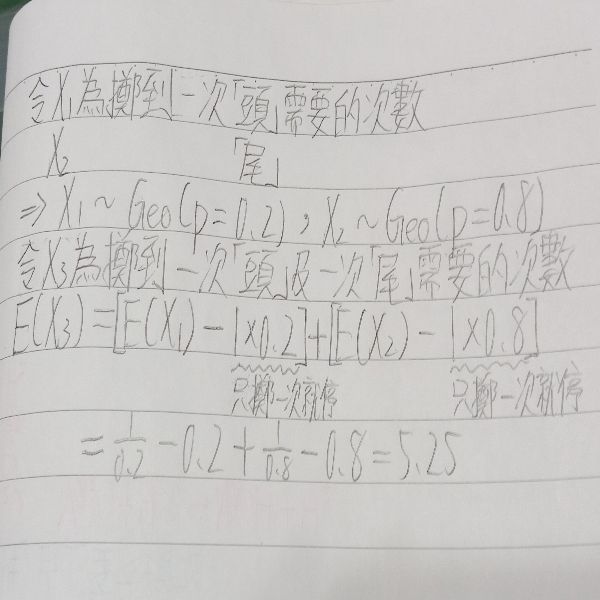 令X₁為擲到一次「頭」需要的次數
X₂ 「尾」
⇒ X₁ ~ Geo(p=0.2), X₂ ~ Geo(p=0.8)
令X₃為擲到一次「頭」及一次「尾」需要的次數
E(X₃) = [E(X₁) - 1×0.2] + [E(X₂) - 1×0.8]
只擲一次就停 只擲一次就停
= 1/0.2 - 0.2 + 1/0.8 - 0.8 = 5.25